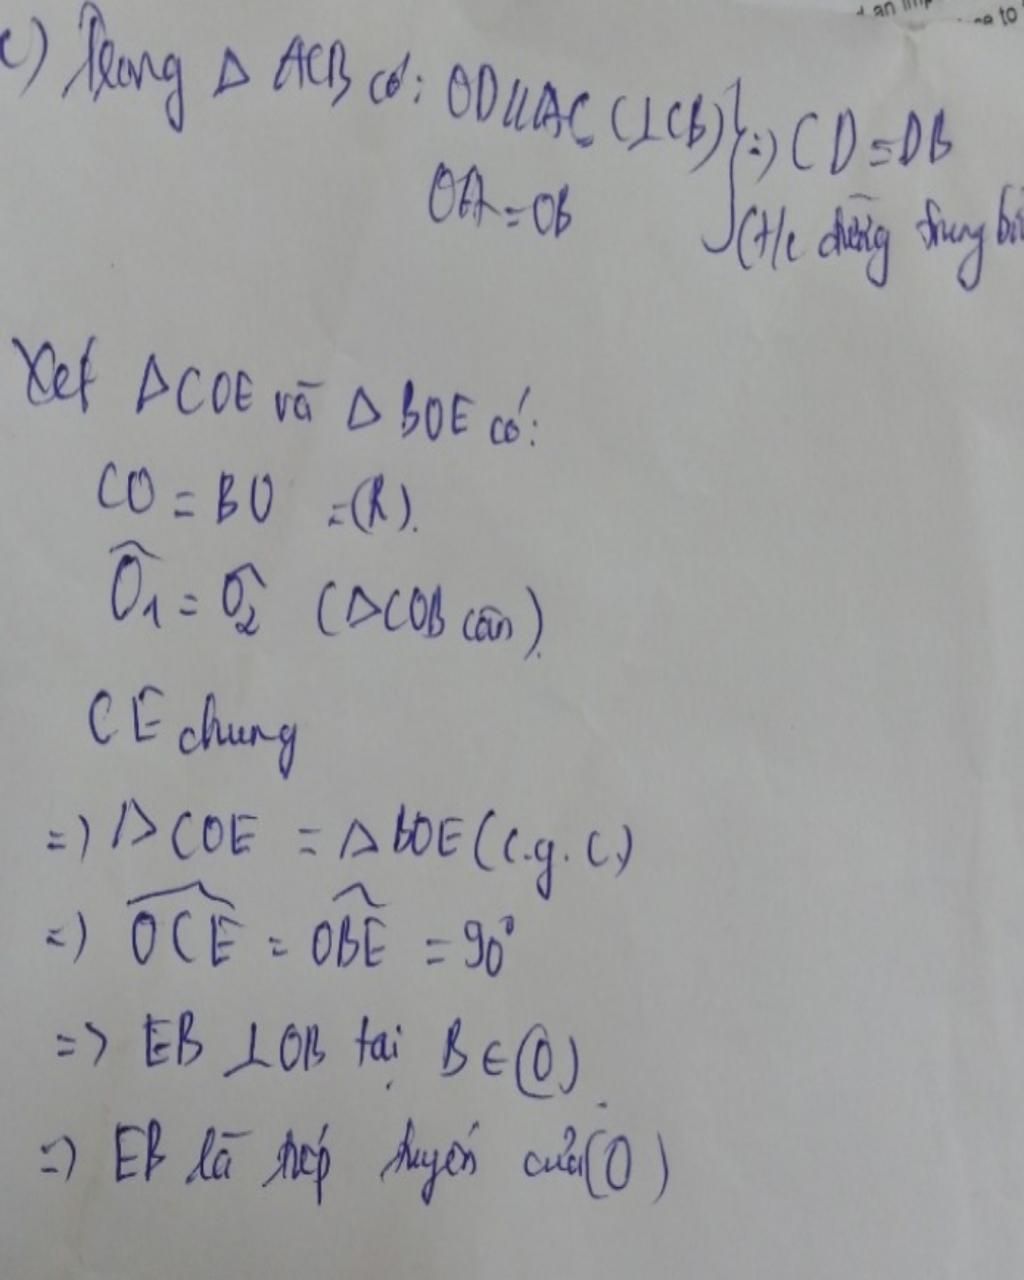 c) Trong Δ ACB có: OD//AC (⊥CB) } => CD=DB
OA=OB (t/c đường trung bì
Xét ΔCOE và Δ BOE có:
CO = BO =(R).
Ô1 = Ô2 (ΔCOB cân).
CE chung
=> ΔCOE = ΔBOE (c.g.c)
=> OCE = OBE = 90°
=> EB ⊥OB tại B ∈ (O)
=> EB là tiếp tuyến của (O)